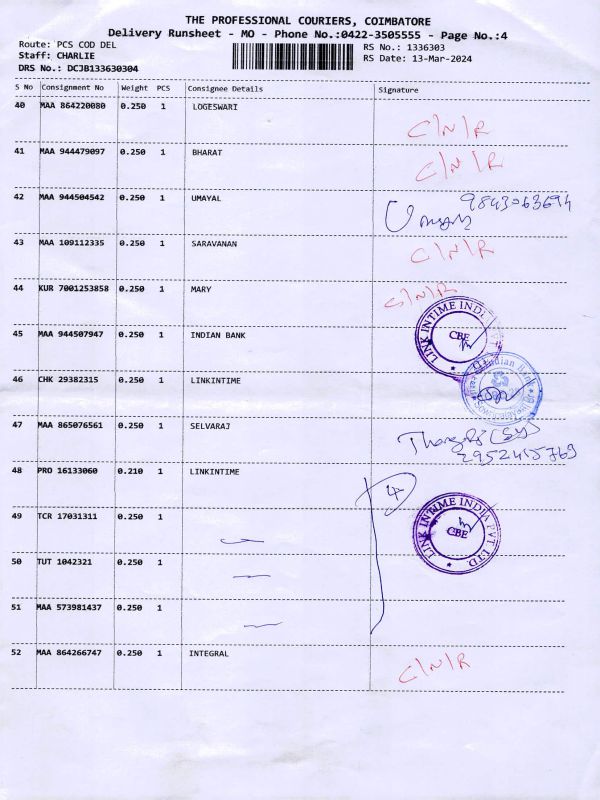 THE PROFESSIONAL COURIERS, COIMBATORE
Delivery Runsheet - MO - Phone No.:0422-3505555 - Page No.:4
Route: PCS COD DEL
RS No.: 1336303
Staff: CHARLIE
RS Date: 13-Mar-2024
DRS No.: DCJB133630304
S No Consignment No Weight PCS Consignee Details Signature
40 MAA 864220080 0.250 1 LOGESWARI
C/N/R
41 MAA 944479097 0.250 1 BHARAT
C/N/R
42 MAA 944504542 0.250 1 UMAYAL
9843063694
43 MAA 109112335 0.250 1 SARAVANAN
C/N/R
44 KUR 7001253858 0.250 1 MARY
C/N/R
LINK INTIME INDIA
CBE
45 MAA 944507947 0.250 1 INDIAN BANK
Indian Bank
46 CHK 29382315 0.250 1 LINKINTIME
47 MAA 865076561 0.250 1 SELVARAJ
48 PRO 16133060 0.210 1 LINKINTIME
4
LINK INTIME INDIA PVT LTD.
CBE
49 TCR 17031311 0.250 1
50 TUT 1042321 0.250 1
51 MAA 573981437 0.250 1
52 MAA 864266747 0.250 1 INTEGRAL
C/N/R